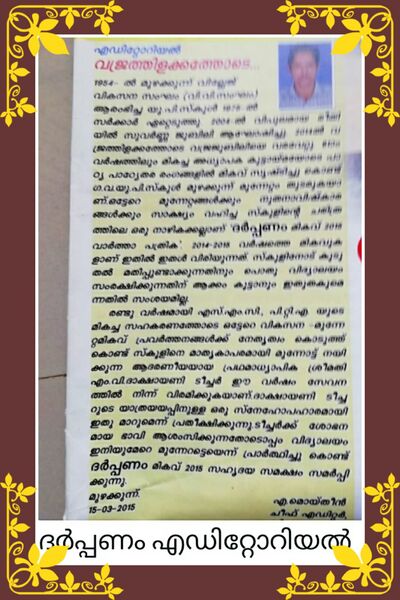 എഡിറ്റോറിയൽ
വജ്രത്തിളക്കത്തോടെ...
1954- ൽ മുഴക്കുന്ന് വില്ലേജ്
വികസന സംഘം (വി.വി.സംഘം)
ആരംഭിച്ച യു.പി.സ്കൂൾ 1975-ൽ
സർക്കാർ ഏറ്റെടുത്തു. 2004-ൽ വിപുലമായ രീതി
യിൽ സുവർണ്ണ ജൂബിലി ആഘോഷിച്ചു.
വർഷത്തിലും മികച്ച അധ്യാപക കൂട്ടായ്മയോടെ പാ
ഠ്യ പാഠ്യേതര രംഗങ്ങളിൽ മികവ് സൃഷ്ടിച്ചു കൊണ്ട്
ഗവ.യു.പി.സ്കൂൾ മുഴക്കുന്ന് മുന്നേറ്റം തുടരുകയാ
ണ്.ഒട്ടേറെ മുന്നേറ്റങ്ങൾക്കും നൂതനാവിഷ്കാര
ങ്ങൾക്കും സാക്ഷ്യം വഹിച്ച സ്കൂളിന്റെ ചരിത്ര
ത്തിലെ ഒരു നാഴികക്കല്ലാണ് 'ദർപ്പണം മികവ് 2015
വാർത്താ പത്രിക'. 2014-2015 വർഷത്തെ മികവുക
ളാണ് ഇതിൽ ഇതൾ വിരിയുന്നത്. സ്കൂളിനോട് കൂടു
തൽ മതിപ്പുണ്ടാക്കുന്നതിനും പൊതു വിദ്യാലയം
സംരക്ഷിക്കുന്നതിന് ആക്കം കൂട്ടാനും ഇതുതകുമെ
ന്നതിൽ സംശയമില്ല.
രണ്ടു വർഷമായി എസ്.എം.സി, പി.റ്റി.എ യുടെ
മികച്ച സഹകരണത്തോടെ ഒട്ടേറെ വികസന -മുന്നേ
റ്റമികവ് പ്രവർത്തനങ്ങൾക്ക് നേതൃത്വം കൊടുത്ത്
കൊണ്ട് സ്കൂളിനെ മാതൃകാപരമായി മുന്നോട്ട് നയി
ക്കുന്ന ആദരണീയയായ പ്രഥമാധ്യാപിക ശ്രീമതി
എം.വി.ദാക്ഷായണി ടീച്ചർ ഈ വർഷം സേവന
ത്തിൽ നിന്ന് വിരമിക്കുകയാണ്.ദാക്ഷായണി ടീച്ച
റുടെ യാത്രയയപ്പിനുള്ള ഒരു സ്നേഹോപഹാരമായി
ഇതു മാറുമെന്ന് പ്രതീക്ഷിക്കുന്നു.ടീച്ചർക്ക് ശോഭന
മായ ഭാവി ആശംസിക്കുന്നതോടൊപ്പം വിദ്യാലയം
ഇനിയുമേറെ മുന്നേറട്ടെയെന്ന് പ്രാർത്ഥിച്ചു കൊണ്ട്
ദർപ്പണം മികവ് 2015 സഹൃദയ സമക്ഷം സമർപ്പി
ക്കുന്നു.
മുഴക്കുന്ന്.
15-03-2015
എ.മൊയ്തീൻ
ചീഫ് എഡിറ്റർ.
ദർപ്പണം എഡിറ്റോറിയൽ